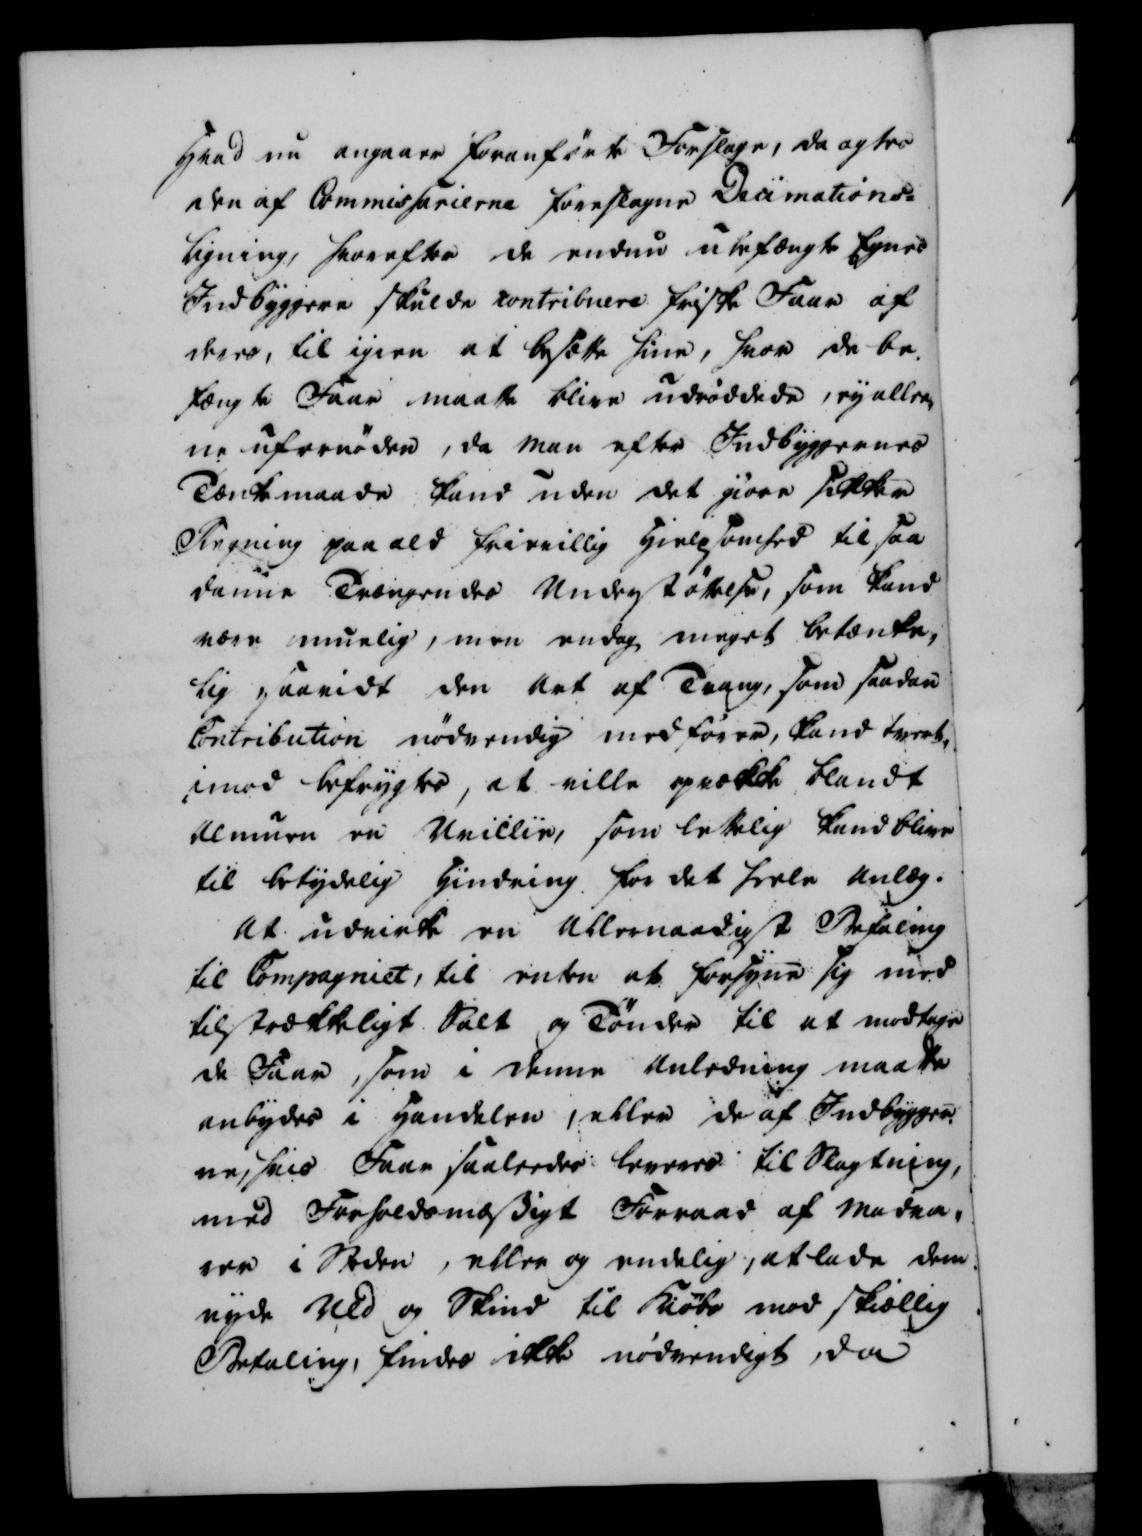 Hvad nu angaaer foranførte Forslage, da agtes
den af Commissarierne foreslagne Decimations-
Ligning, hvorefter de endnu ubefængte Egnes
Indbyggere skulde contribuere friske Faar af
deres, til igien at besætte hine, hvor de be-
fængte Faar maatte blive udrøddede, ey allee-
ne ufornøden, da man efter Indbyggernes
Tænkemaade kand uden det giøre sikker
Regning paa ald frievillig Hielpsomhed til saa
danne Trængendes Understøttelse, som kand
være muelig, men endog meget betænke-
lig, saavidt den Art af Tvang, som saadan
Contribution nødvendig medfører, kand tvert-
imod befrygtes, at ville opvække blandt
Almuen en Uvillie, som lettelig kand blive
til betydelig Hindring for det heele Anlæg.
At udvirke en Allernaadigst Befaling
til Compagniet, til enten at forsyne sig med
tilstrækkeligt Salt og Tønder til at modtage
de Faar, som i denne Anledning maatte
anbydes i Handelen, eller de af Indbygger-
ne, hvis Faar saaledes leveres til Slagtning,
med Forholdsmæssigt Forraad af Madva-
rer i Steden, eller og endelig, at lade dem
nyde Uld og Skind til Kiøbs mod skiellig
Betaling, findes ikke nødvendigt, da